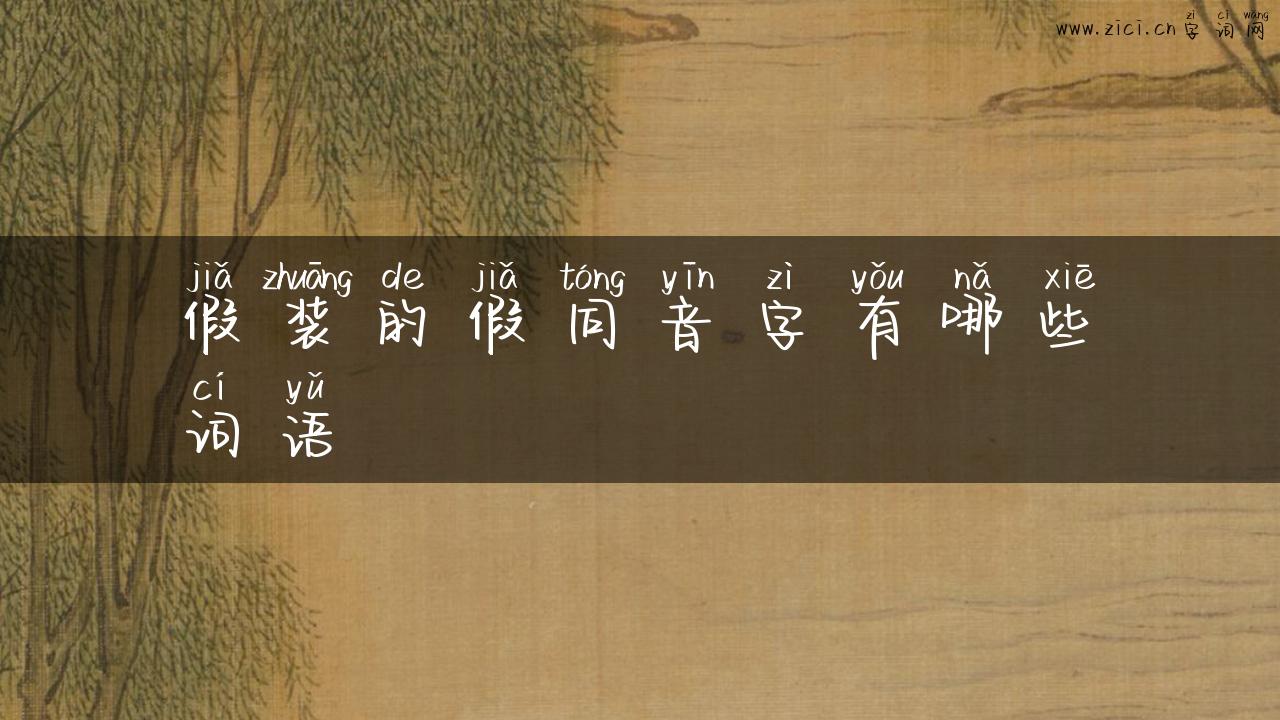 zì cí wǎng
www.zici.cn 字词网
jiǎ zhuāng de jiǎ tóng yīn zì yǒu nǎ xiē
假装的假同音字有哪些
cí yǔ
词语